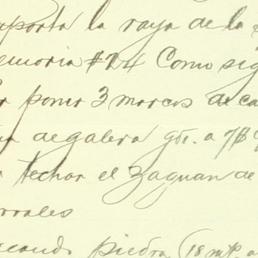 mporta la raya de la
emoria #24 Como sig
r poner 3 marcos de ca
de galera
techar el zaguan de
rrales
piedra (18 m